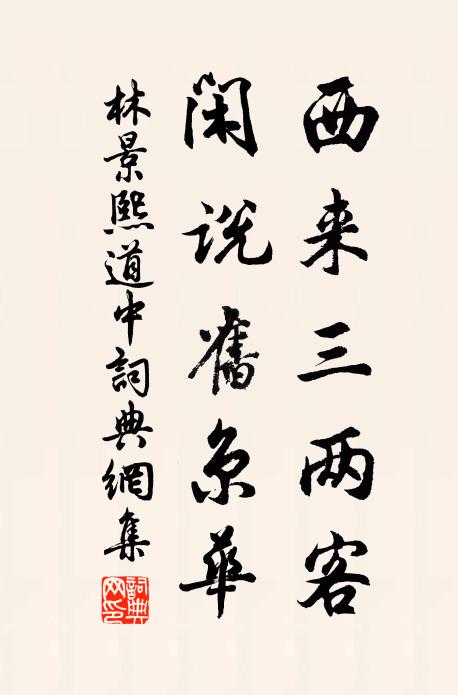 西来三两客
闲説舊京華
林景熙道中詞典網集
詞典网印